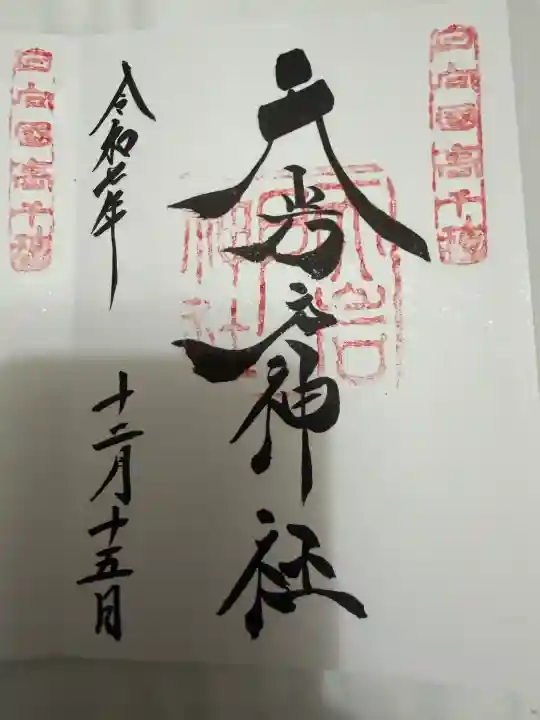 日向國高千穂
天岩戸神社
天岩戸神社
令和七年 十二月十五日
日向國高千穂